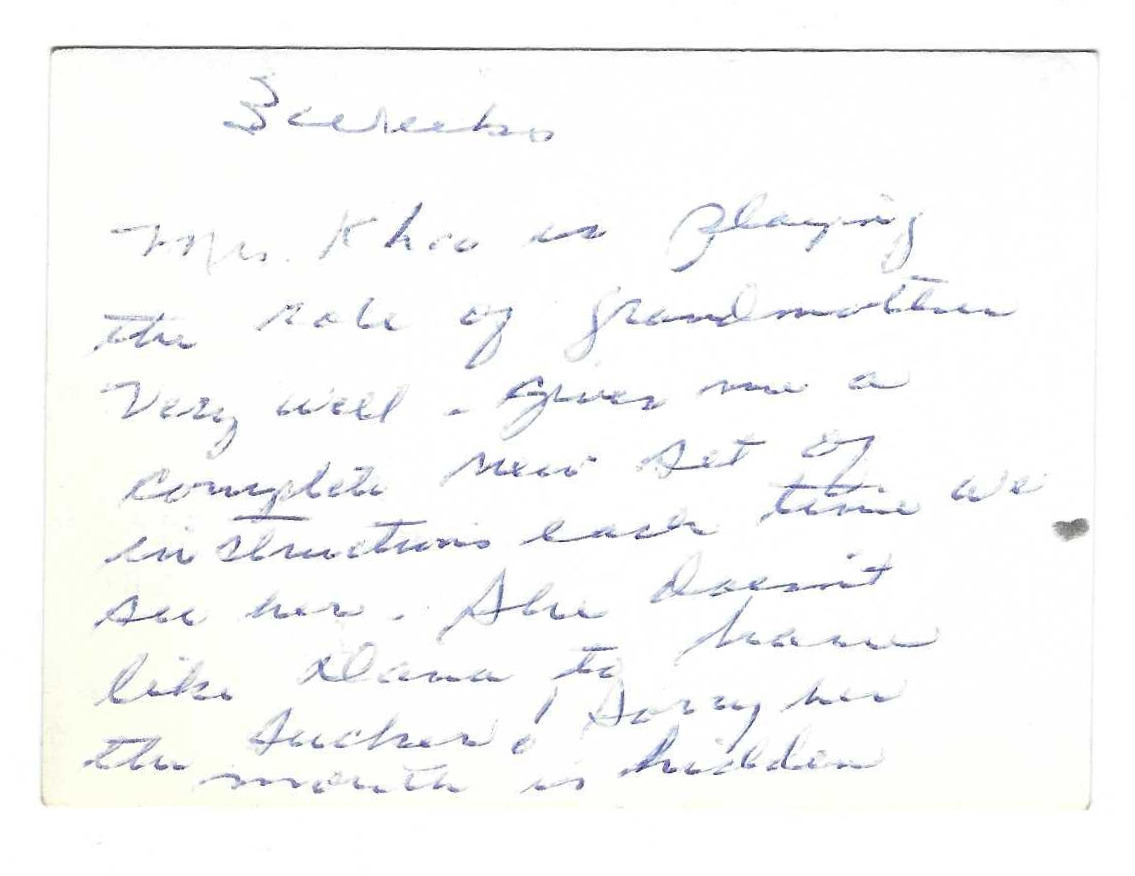 3 weeks
Mrs. Khoo is playing
the role of grandmother
Very well - gives me a
complete new set of
instructions each time we
see her. She doesn't
like Dana to have
the sucker! Sorry her
mouth is hidden